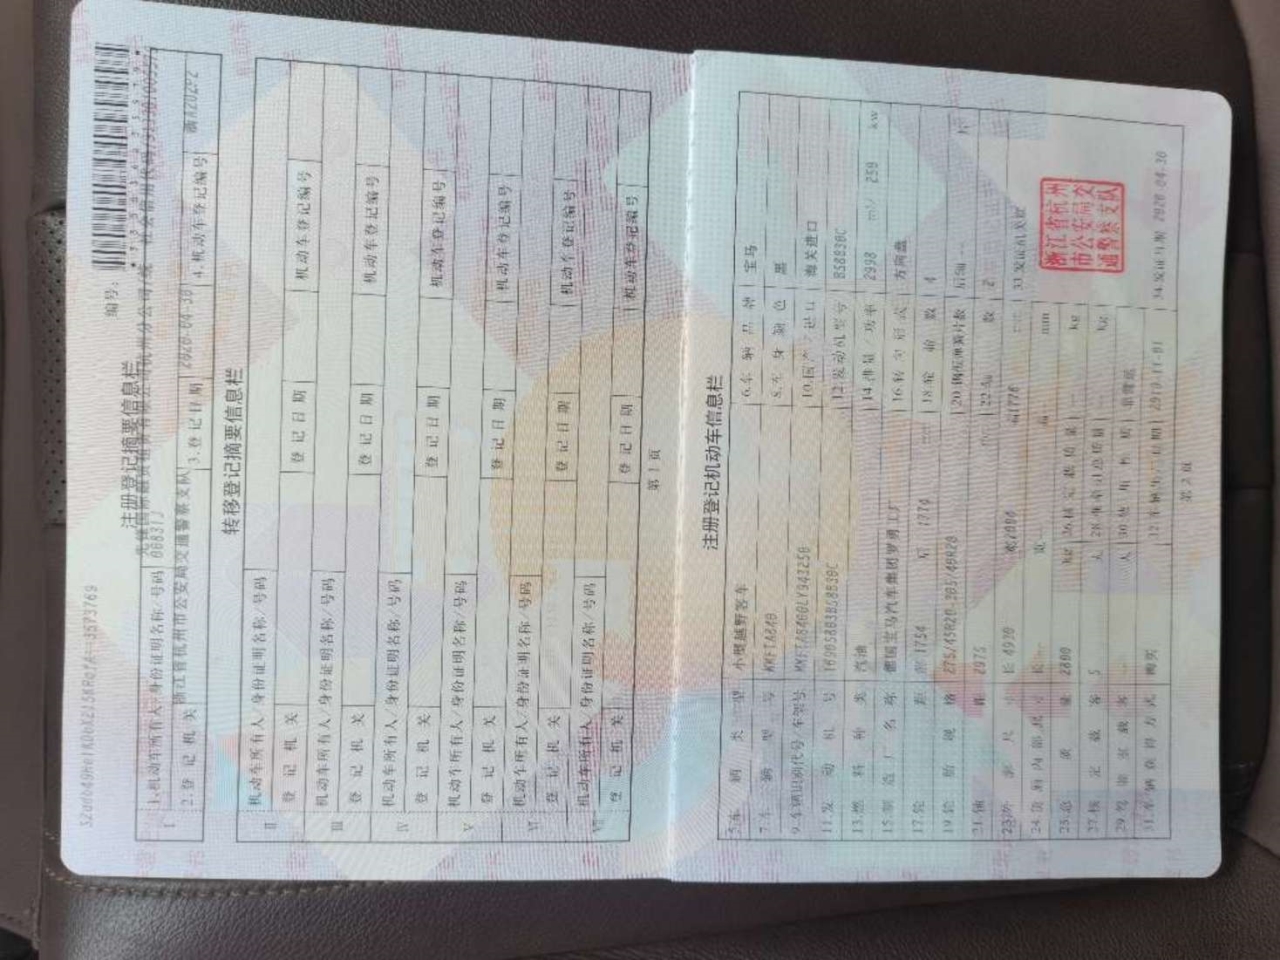 编号:
注册登记摘要信息栏
I 1.机动车所有人/身份证明名称/号码
2.登记机关 浙江省杭州市公安局交通警察支队 3.登记日期 2020-04-30 4.机动车登记编号
转移登记摘要信息栏
II 机动车所有人/身份证明名称/号码
登记机关 登记日期 机动车登记编号
III 机动车所有人/身份证明名称/号码
登记机关 登记日期 机动车登记编号
IV 机动车所有人/身份证明名称/号码
登记机关 登记日期 机动车登记编号
V 机动车所有人/身份证明名称/号码
登记机关 登记日期 机动车登记编号
VI 机动车所有人/身份证明名称/号码
登记机关 登记日期 机动车登记编号
VII 机动车所有人/身份证明名称/号码
登记机关 登记日期 机动车登记编号
第1页
注册登记机动车信息栏
5.车辆类型 小型越野客车 6.车辆品牌 宝马
7.车辆型号 8.车身颜色 黑
9.车辆识别代号/车架号 10.国产/进口 海关进口
11.发动机号 12.发动机型号 B58B30C
13.燃料种类 汽油 14.排量/功率 2998 ml/ 250 kw
15.制造厂名称 德国宝马汽车集团罗勇工厂 16.转向形式 方向盘
17.轮距 前 1754 后 1774 18.轮胎数 4
19.轮胎规格 275/45R20-305/40R20 20.钢板弹簧片数 后轴 -- 片
21.轴距 2975 22.轴数 2
23.外廓尺寸 长 4930 宽 2004 高 1776 mm 33.发证机关章
24.货厢内部尺寸 长 宽 高 mm
25.总质量 2800 kg 26.核定载质量 -- kg
27.核定载客 5 人 28.准牵引总质量 -- kg
29.驾驶室载客 人 30.使用性质
31.车辆获得方式 购买 32.车辆出厂日期 2019-11-01 34.发证日期 2020-04-30
浙江省杭州
市公安局交
通警察支队
第2页